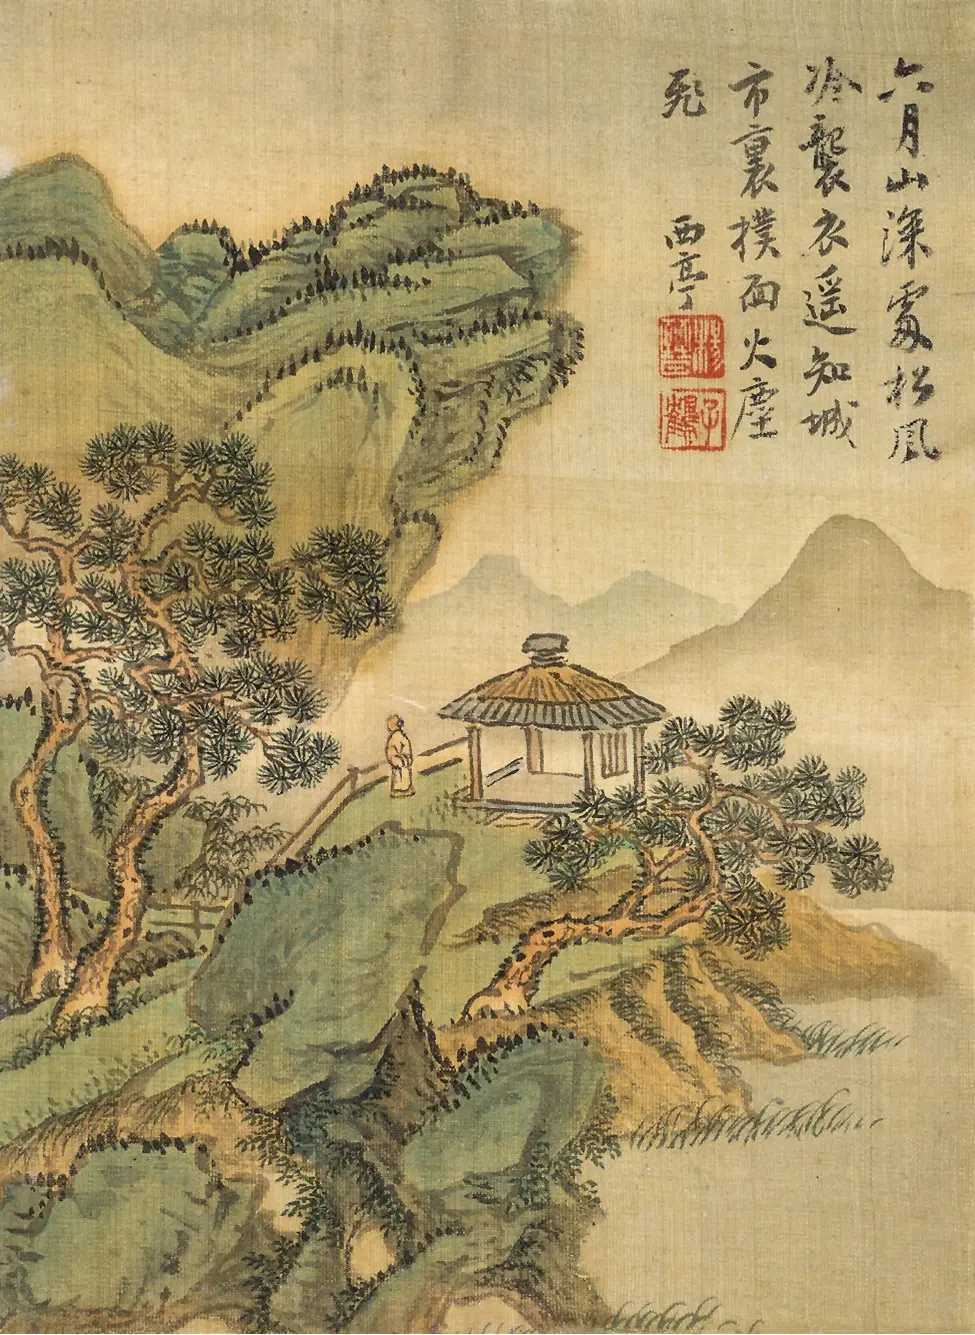 六月山深處松風
冷襲衣遥知城
市裏撲面火塵
飛
西亭
楊晉
子鶴